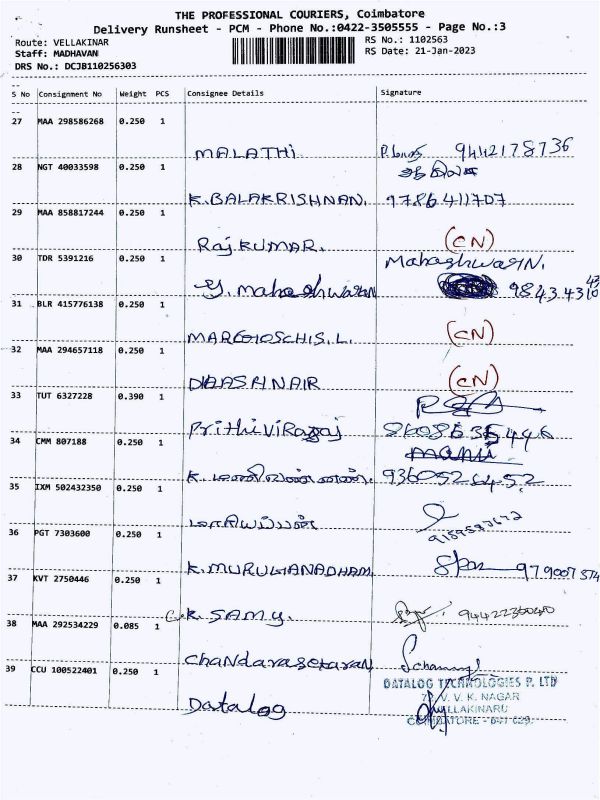 THE PROFESSIONAL COURIERS, Coimbatore
Delivery Runsheet - PCM - Phone No.:0422-3505555 - Page No.:3
Route: VELLAKINAR
RS No.: 1102563
Staff: MADHAVAN
RS Date: 21-Jan-2023
DRS No.: DCJB110256303
S No Consignment No Weight PCS Consignee Details Signature
27 MAA 298586268 0.250 1
MALATHI 9442178736
28 NGT 40033598 0.250 1
K.BALAKRISHNAN. 9786411707
29 MAA 858817244 0.250 1
RAJ.KUMAR. (CN)
30 TDR 5391216 0.250 1
Maheshwaran 98434310
31 BLR 415776138 0.250 1
(CN)
32 MAA 294657118 0.250 1
(CN)
33 TUT 6327228 0.390 1
Prithiviraj
34 CMM 807188 0.250 1
K. மணிவண்ணன்.
35 IXM 502432350 0.250 1
மாரியப்பன்
36 PGT 7303600 0.250 1
K.MURUGANADHAM
37 KVT 2750446 0.250 1
K SAMY.
38 MAA 292534229 0.085 1
Chandarasekaran
39 CCU 100522401 0.250 1
Datalog
DATALOG TECHNOLOGIES P. LTD
V. V. K. NAGAR
VELLAKINARU
COIMBATORE - 641 029.